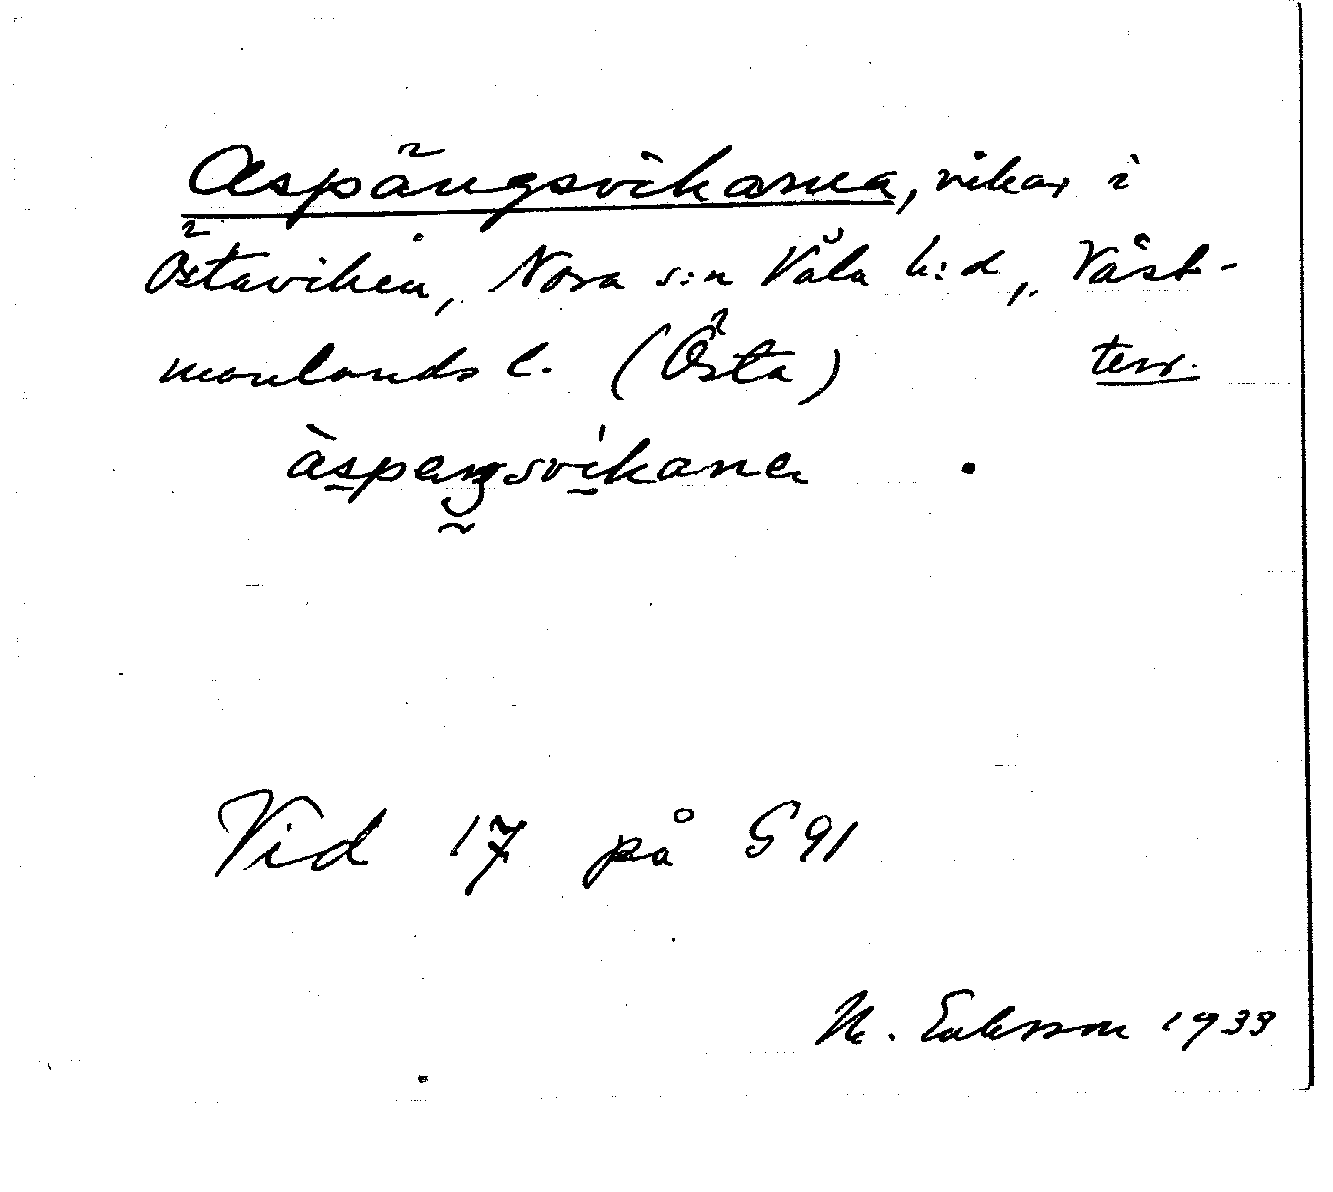 Aspängsvikarna, vikar i
Östaviken, Nora s:n Våla h:d, Väst-
manlands l. (Östa) terr.
àspæŋsvikana
Vid 17 på S 91
M. Eriksson 1933